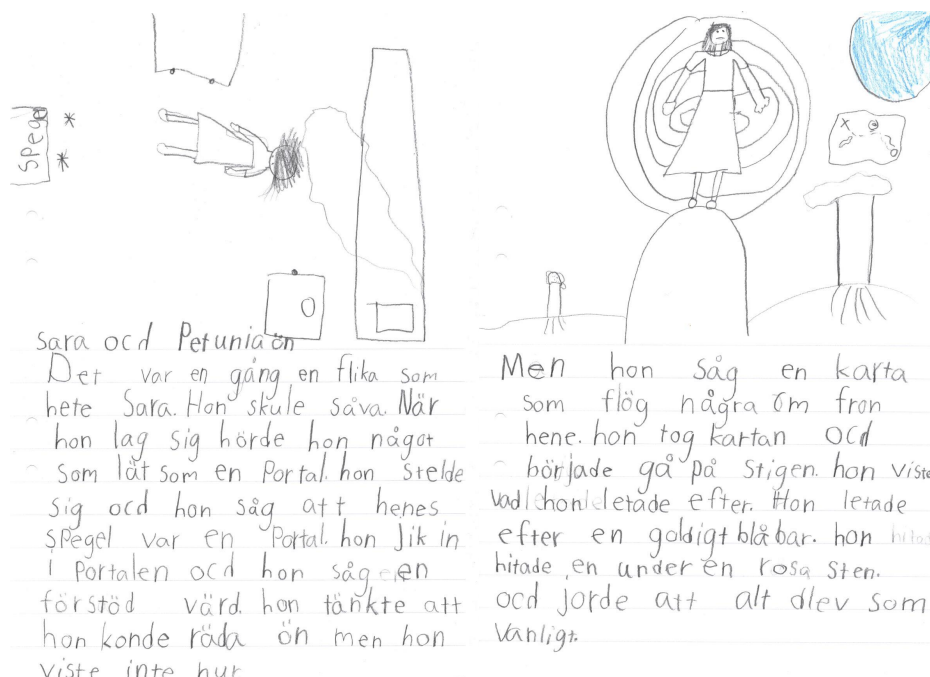 SPegel
Sara ocd Petuniaön
Det var en gång en flika som
hete Sara. Hon skule såva. När
hon lag sig hörde hon något
som lät som en Portal. hon stelde
sig ocd hon såg att henes
SPegel var en Portal. hon Jik in
i Portalen ocd hon såg en
förstöd värd. hon tänkte att
hon konde räda ön men hon
viste inte hur
Men hon Såg en karta
som flög några öm fron
hene. hon tog kartan OCd
började gå på Stigen. hon viste
vad hon letade efter. Hon letade
efter en goldigt blåbar. hon
hitade en under en rosa Sten.
ocd jorde att alt dlev som
Vanligt.